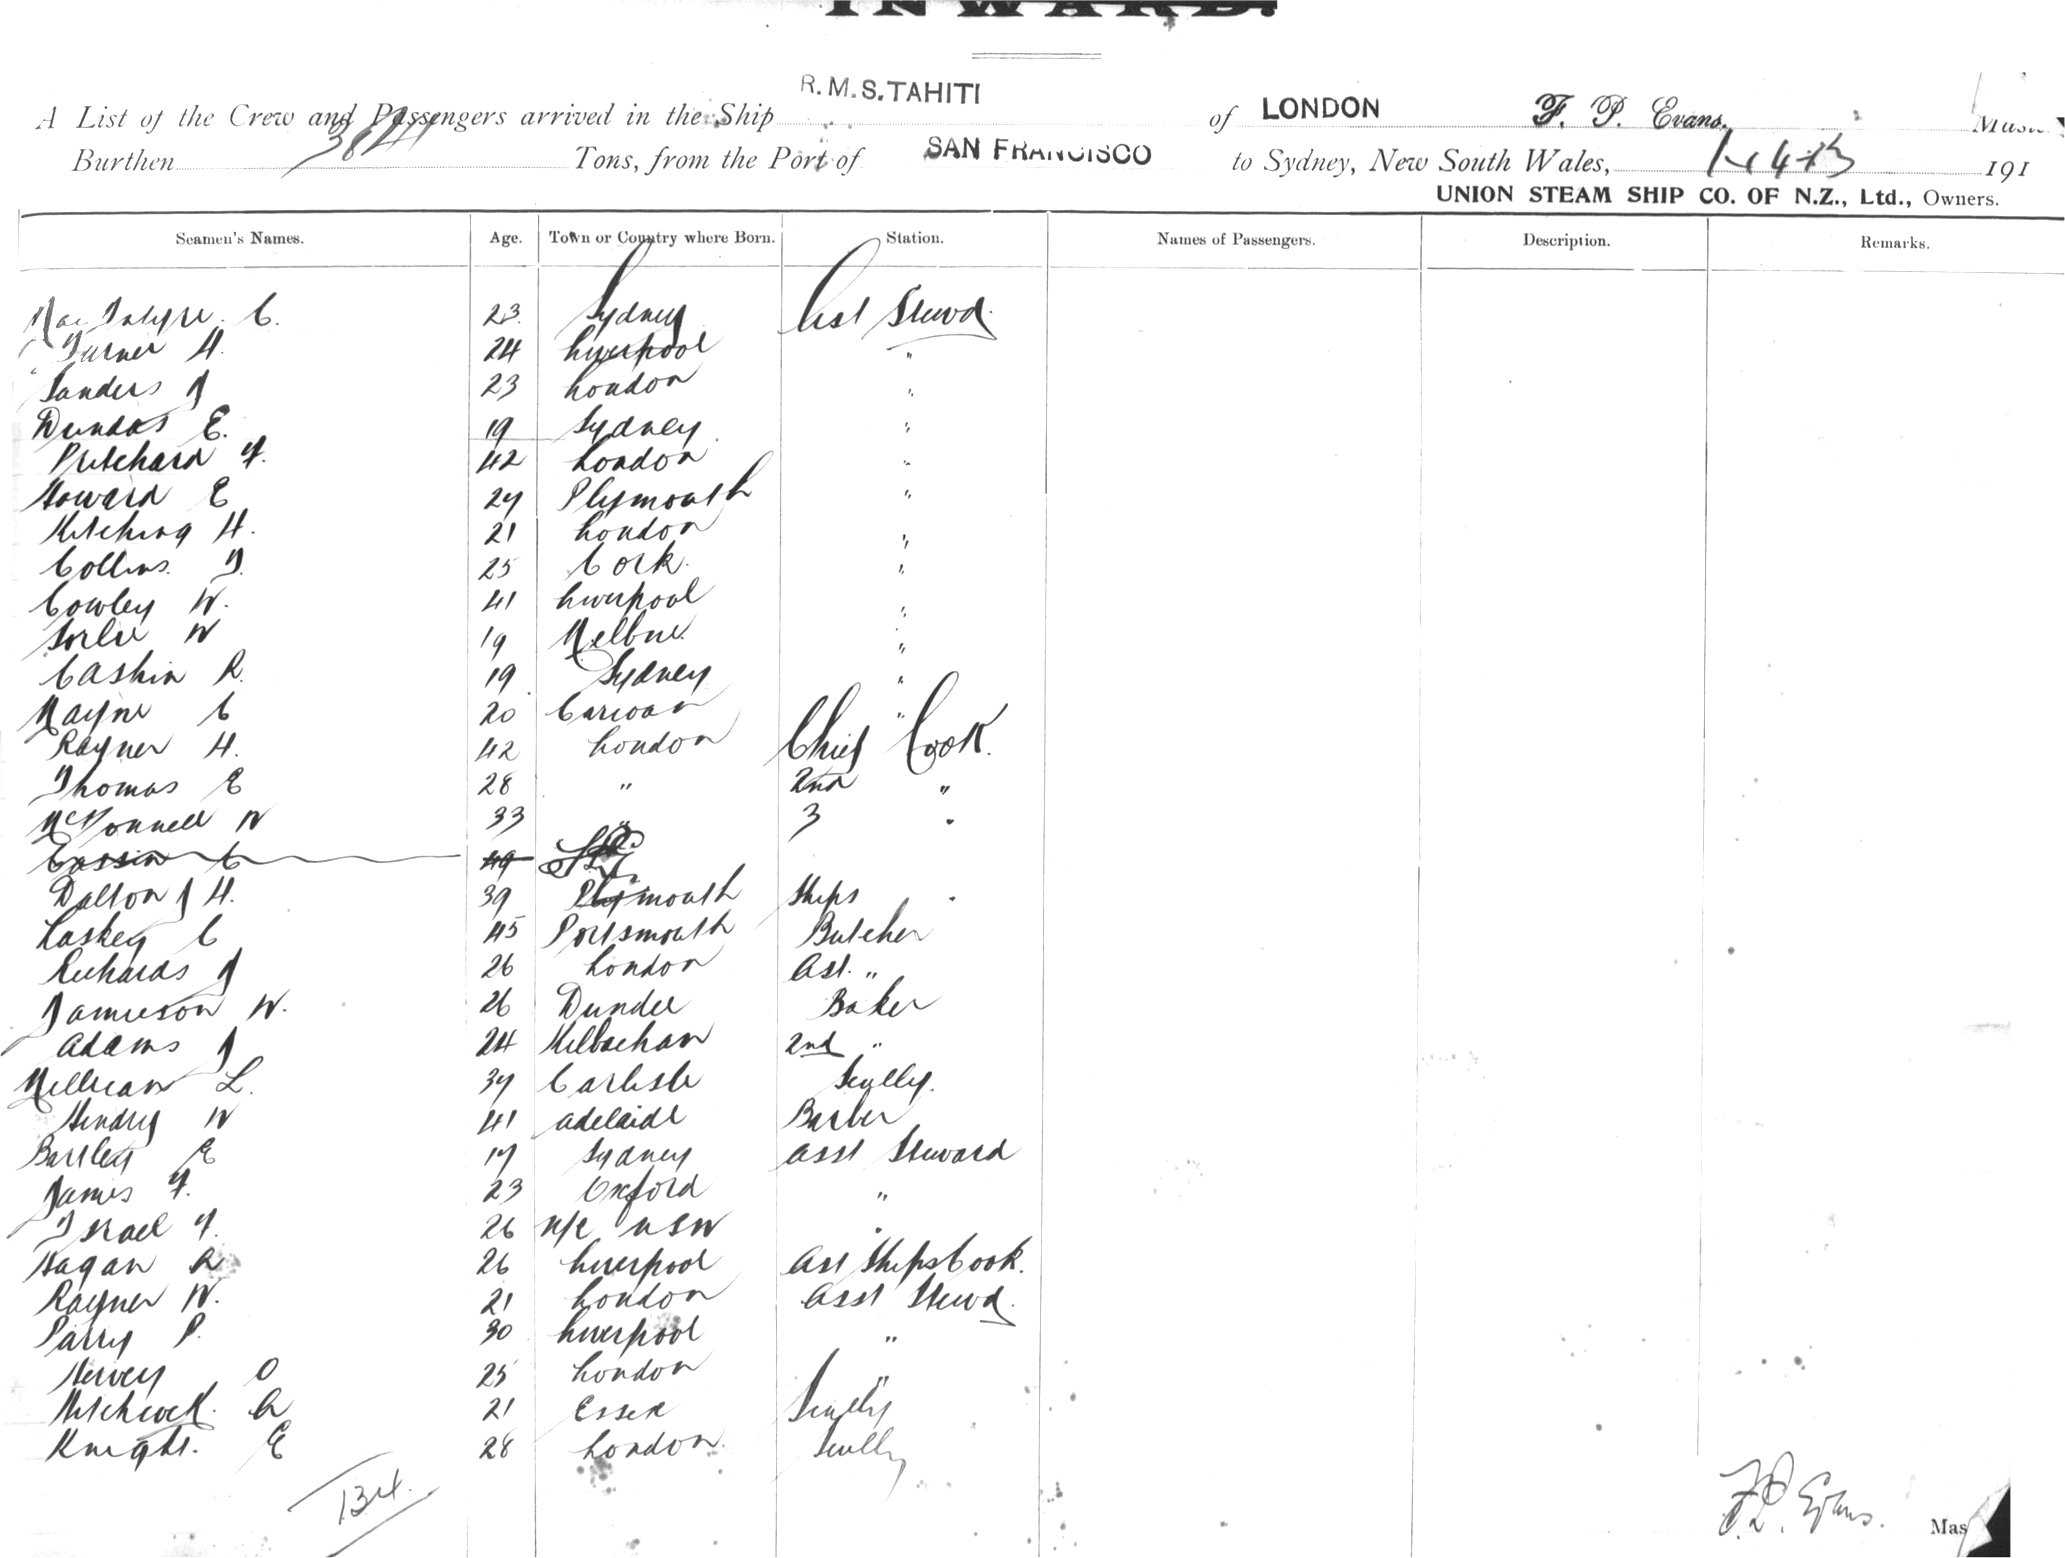 INWARD.
R.M.S. TAHITI
A List of the Crew and Passengers arrived in the Ship of LONDON F. P. Evans.
Burthen Tons, from the Port of SAN FRANCISCO to Sydney, New South Wales, 191
UNION STEAM SHIP CO. OF N.Z., Ltd., Owners.
Seamen's Names. Age. Town or Country where Born. Station. Names of Passengers. Description. Remarks.
MacIntyre C. 23 Sydney Asst Stewd.
Turner H. 24 Liverpool "
Sanders J 23 London "
Dundas E. 19 Sydney "
Pritchard F. 42 London "
Howard E 27 Plymouth "
Kitching H. 21 London "
Collins. T. 25 Cork. "
Cowley W. 41 Liverpool "
Sorlie W 19 Melbne. "
Cashin R. 19 Sydney "
Mayne C 20 "
Rayner H. 42 London Chief Cook.
Thomas E 28 " 2nd "
McDonnell W 33 " 3 "
Cassin C 49
Dalton J H. 39 Plymouth Ships "
Laskey C 45 Portsmouth Butcher
Richards J 26 London Ast. "
Jamieson W. 26 Dundee Baker
Adams J 24 Kilbachan 2nd "
Millican L. 37 Carlisle Scully.
Hendry W 41 Adelaide Barber
Bartley E 17 Sydney Asst Steward
James F. 23 Oxford "
Israel F. 26 N/C NSW "
Hagan A 26 Liverpool Ast Ships Cook.
Rayner W. 21 London Asst Stewd.
Parry P. 30 Liverpool "
Hervey O 25 London "
Hitchcock. A 21 Essex Scully
Knight. E 28 London. Scully
134.
F. P. Evans.
Mas